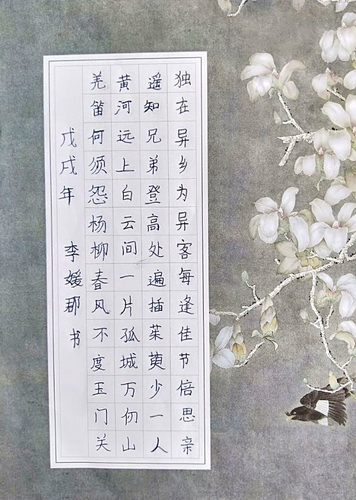 独在异乡为异客每逢佳节倍思亲
遥知兄弟登高处遍插茱萸少一人
黄河远上白云间一片孤城万仞山
羌笛何须怨杨柳春风不度玉门关
戊戌年 李媛郡 书